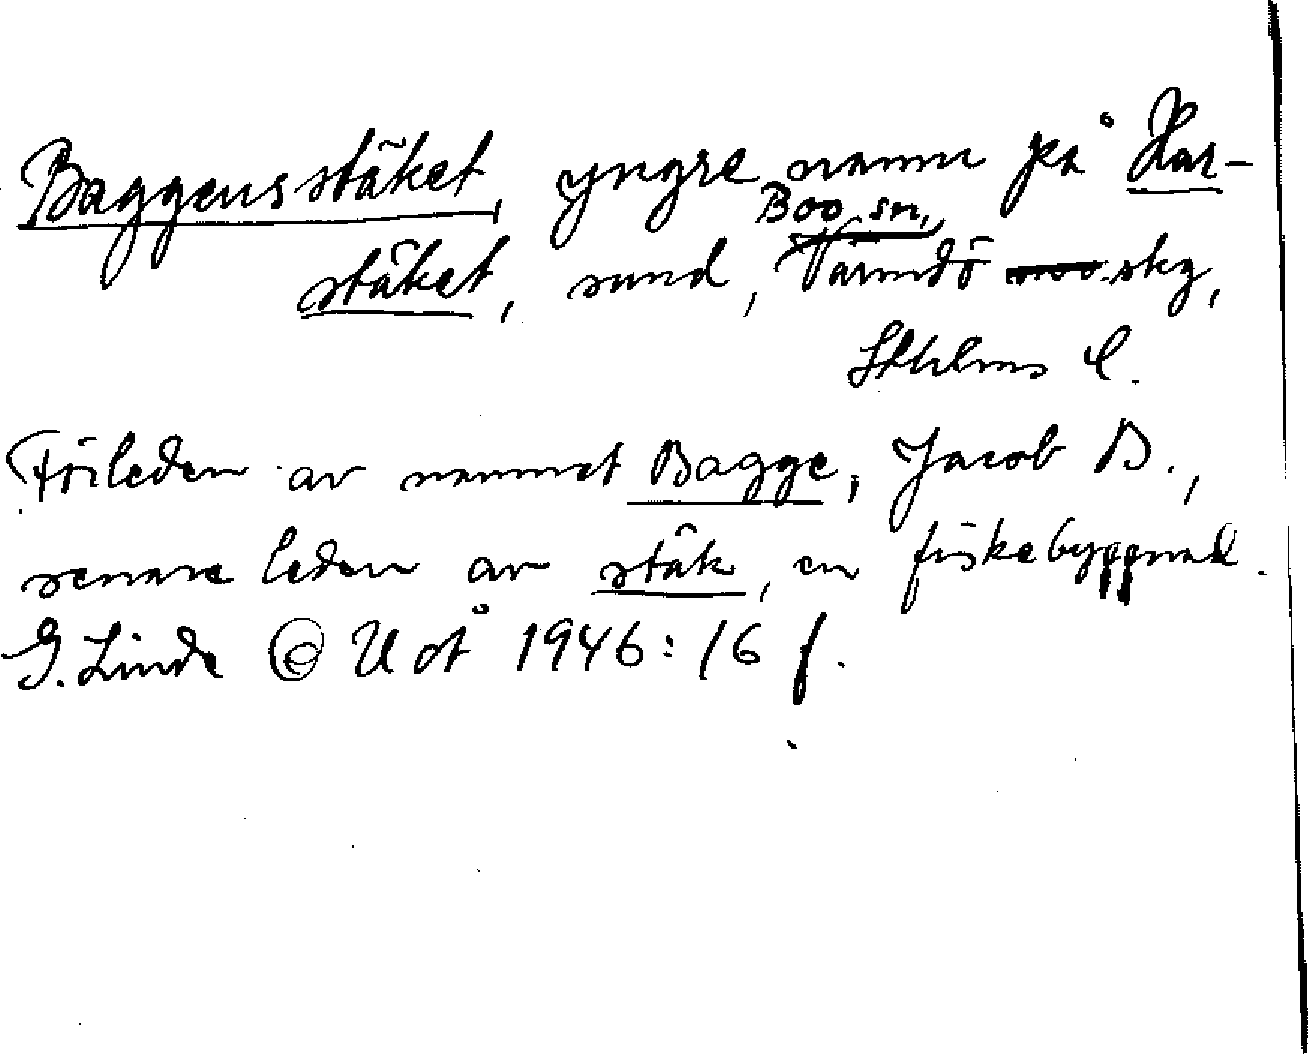 Baggensstäket, yngre namn på Har-
Boo sn,
stäket, sund, Värmdö skg,
Sthlms l.
Förleden av namnet Bagge, Jacob B.,
senare leden av stäk, en fiskebyggnad.
G. Linde © U o Å 1946:16 f.